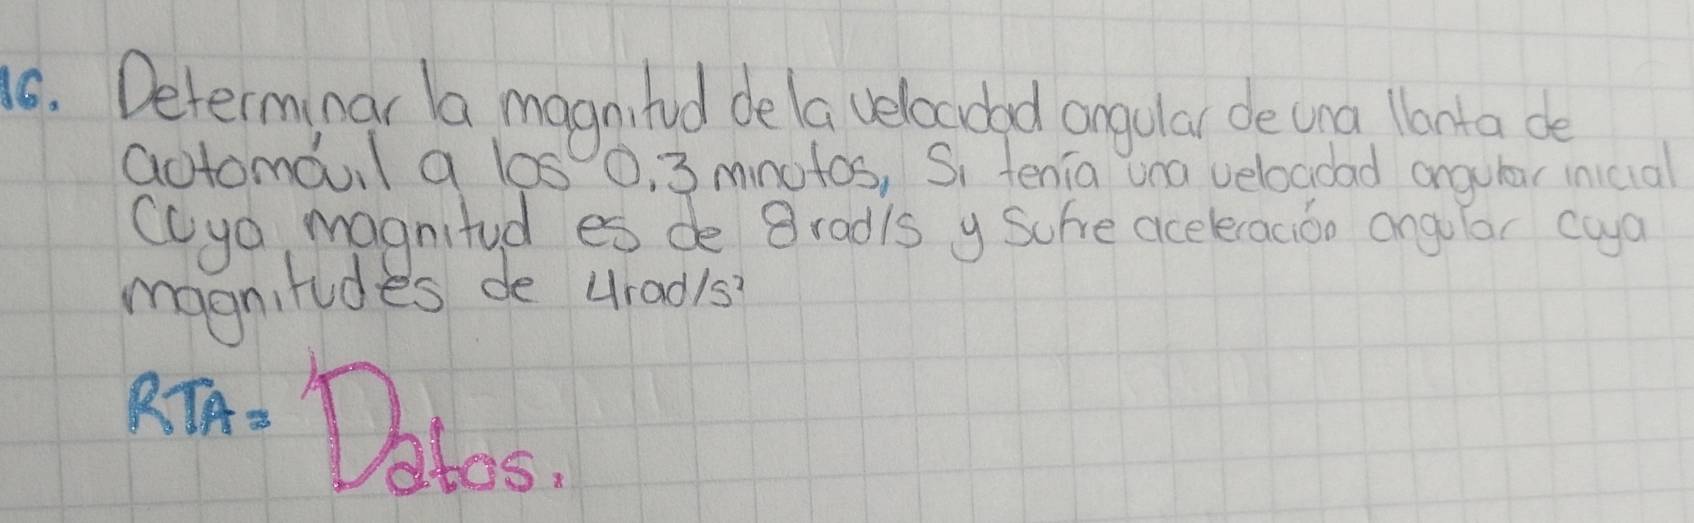 16. Determinar la magnitud de la velocidad angular de una llanta de
automóvil a los 0.3 minutos, Si tenía una velocidad angular inicial
Cuya magnitud es de 8rad/s y sufre aceleración angular cuya
magnitud es de 4rad/s²
RTA= Datos.